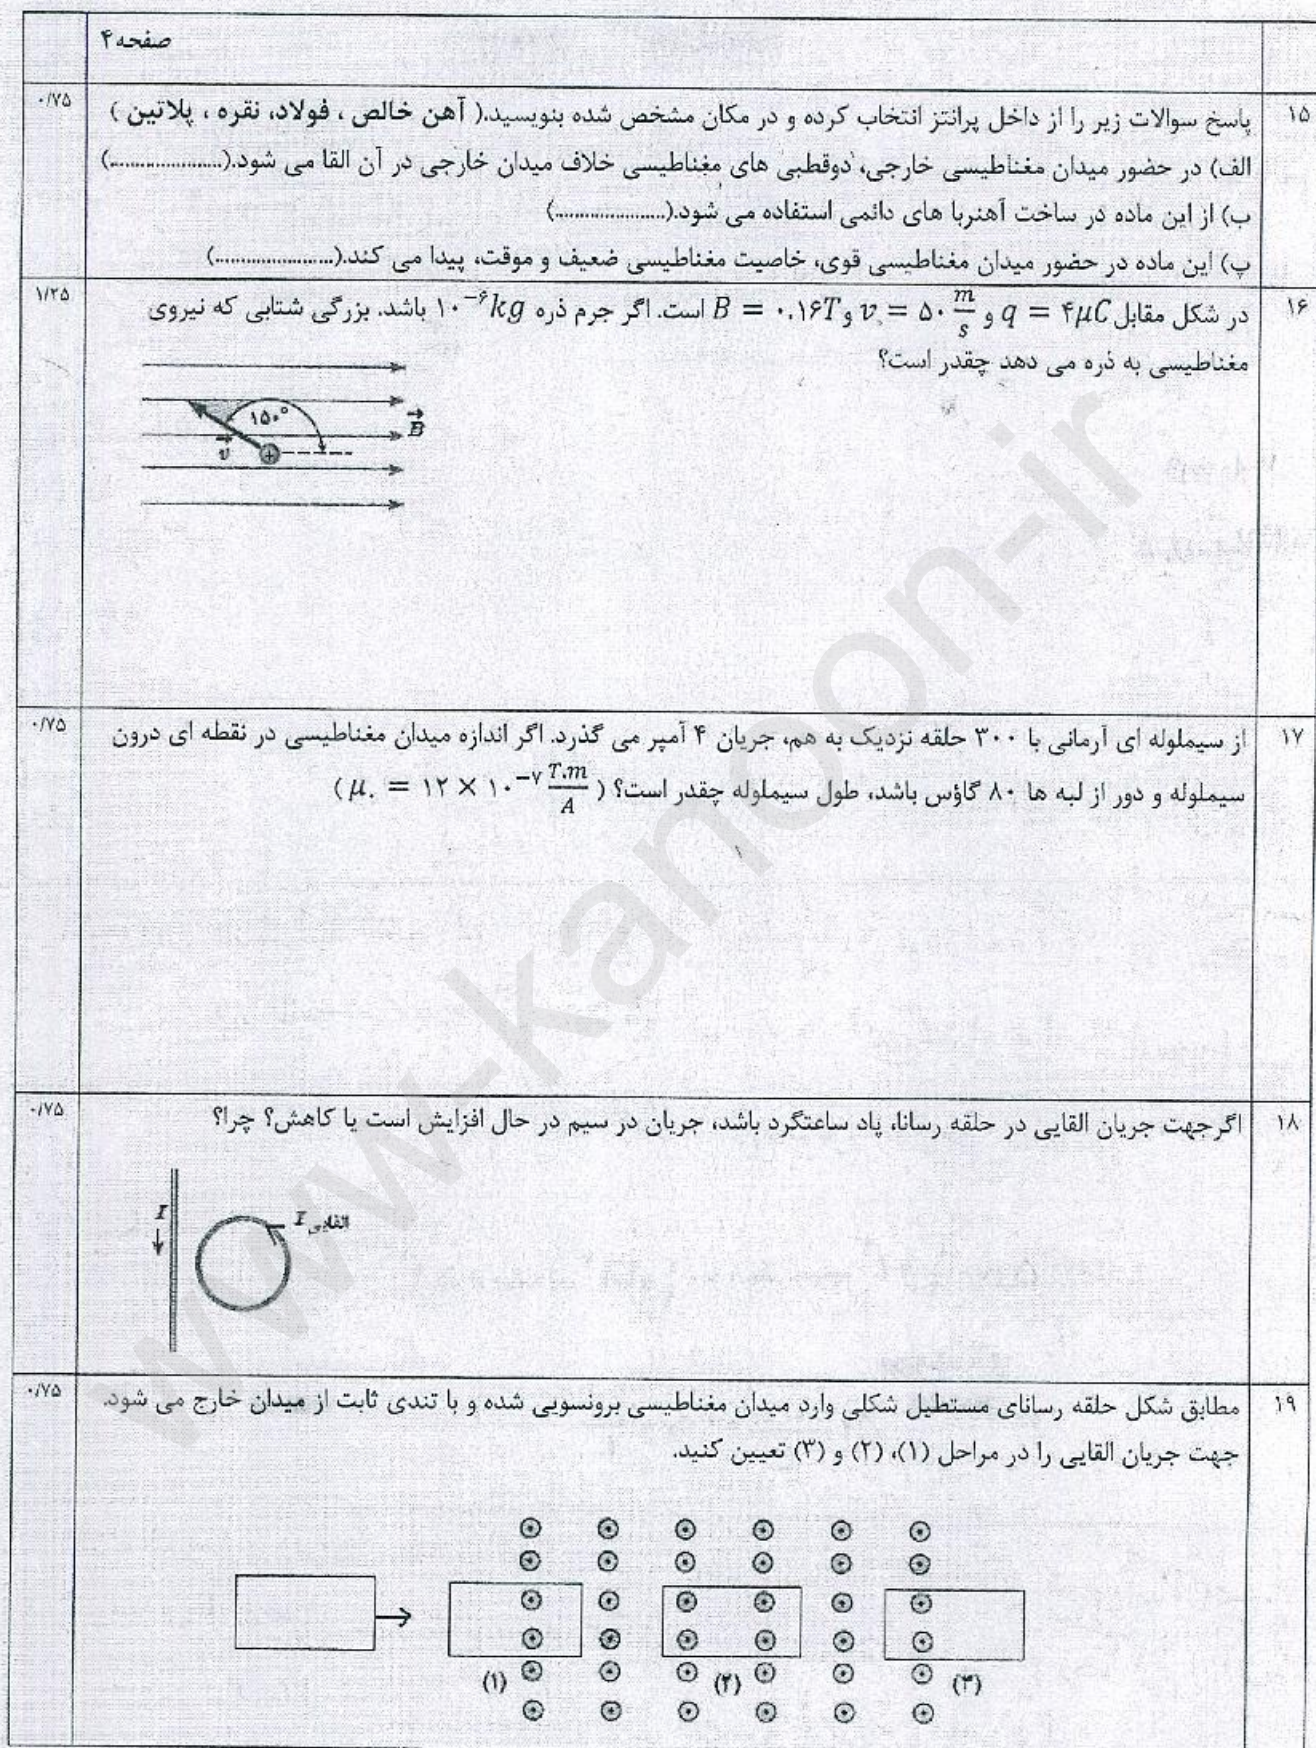 صفحه۴
۱۵
۰/۷۵
پاسخ سوالات زیر را از داخل پرانتز انتخاب کرده و در مکان مشخص شده بنویسید.( آهن خالص ، فولاد، نقره ، پلاتین )
الف) در حضور میدان مغناطیسی خارجی، دوقطبی های مغناطیسی خلاف میدان خارجی در آن القا می شود.(......................)
ب) از این ماده در ساخت آهنربا های دائمی استفاده می شود.(......................)
پ) این ماده در حضور میدان مغناطیسی قوی، خاصیت مغناطیسی ضعیف و موقت، پیدا می کند.(......................)
۱۶
۱/۲۵
در شکل مقابل q = ۴μC و v = ۵۰ m/s و B = ۰.۱۶T است. اگر جرم ذره ۱۰⁻⁶kg باشد، بزرگی شتابی که نیروی
مغناطیسی به ذره می دهد چقدر است؟
۱۵۰°
B
v
+
۱۷
۰/۷۵
از سیملوله ای آرمانی با ۳۰۰ حلقه نزدیک به هم، جریان ۴ آمپر می گذرد. اگر اندازه میدان مغناطیسی در نقطه ای درون
سیملوله و دور از لبه ها ۸۰ گاؤس باشد، طول سیملوله چقدر است؟ ( μ۰ = ۱۲ × ۱۰⁻⁷ T.m/A )
۱۸
۰/۷۵
اگرجهت جریان القایی در حلقه رسانا، پاد ساعتگرد باشد، جریان در سیم در حال افزایش است یا کاهش؟ چرا؟
I
I القایی
۱۹
۰/۷۵
مطابق شکل حلقه رسانای مستطیل شکلی وارد میدان مغناطیسی برونسویی شده و با تندی ثابت از میدان خارج می شود.
جهت جریان القایی را در مراحل (۱)، (۲) و (۳) تعیین کنید.
(۱)
(۲)
(۳)
www-kanoon-ir